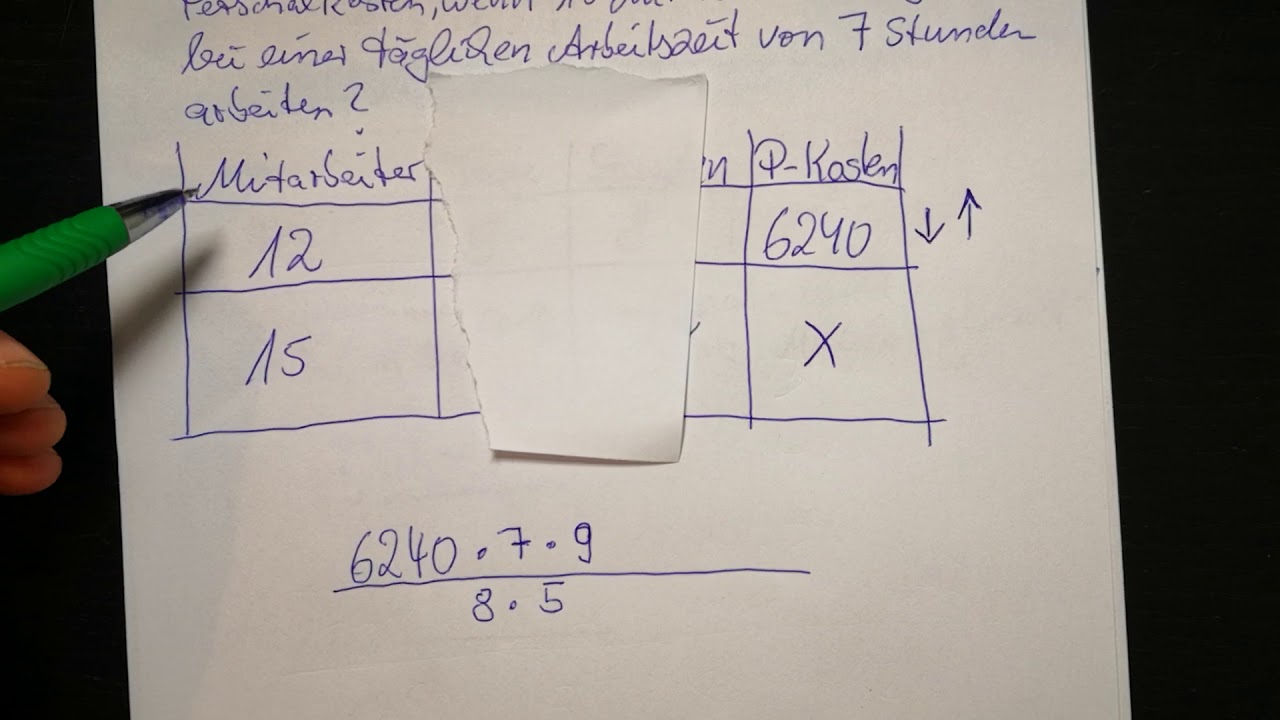 Personalkosten, wenn
bei einer täglichen Arbeitszeit von 7 Stunden
arbeiten?
Mitarbeiter n P-Kosten
12 6240 ↓ ↑
15 X
6240 · 7 · 9
8 · 5